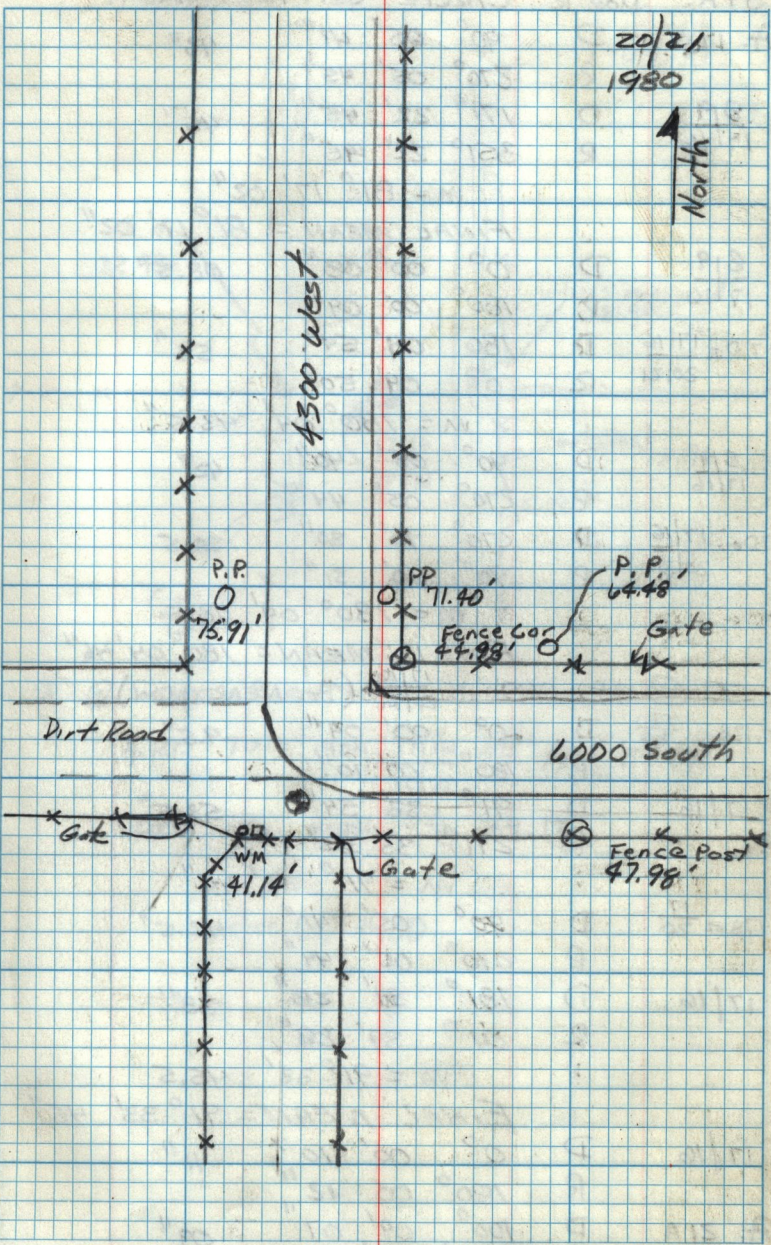 20/21
1980
North
4300 West
P.P.
75.91'
PP
71.40'
P.P.
64.48'
Fence Cor.
44.98'
Gate
Dirt Road
6000 South
Gate
WM
41.14'
Gate
Fence Post
47.98'